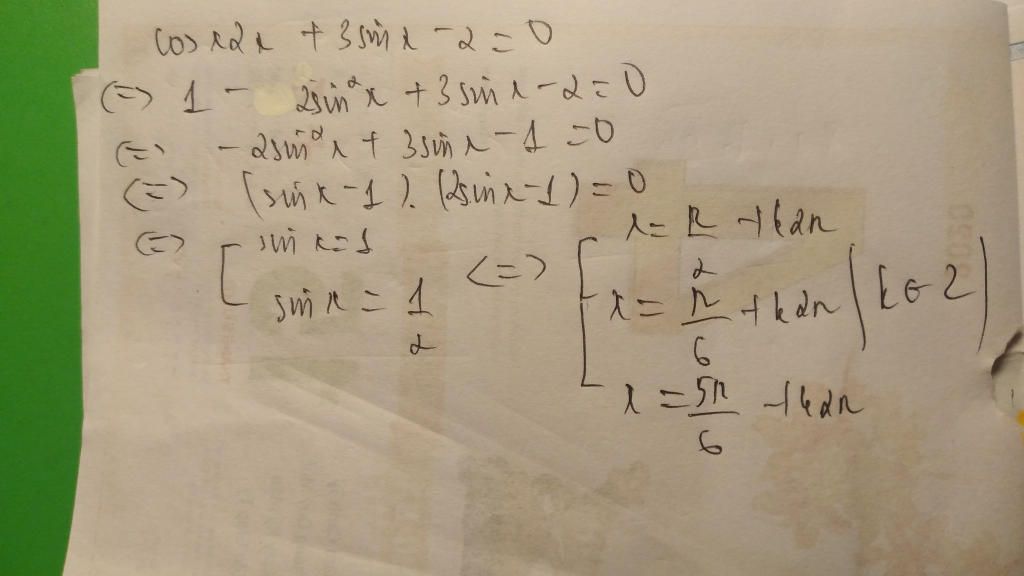 cos x2x + 3sin x - 2 = 0
<=> 1 - 2sin²x + 3 sin x - 2 = 0
<=> - 2sin²x + 3sin x - 1 = 0
<=> (sin x - 1). (2sin x - 1) = 0
<=> [ sin x = 1
sin x = 1/2
<=> [ x = π/2 + k2π
x = π/6 + k2π (k ∈ Z)
x = 5π/6 + k2π